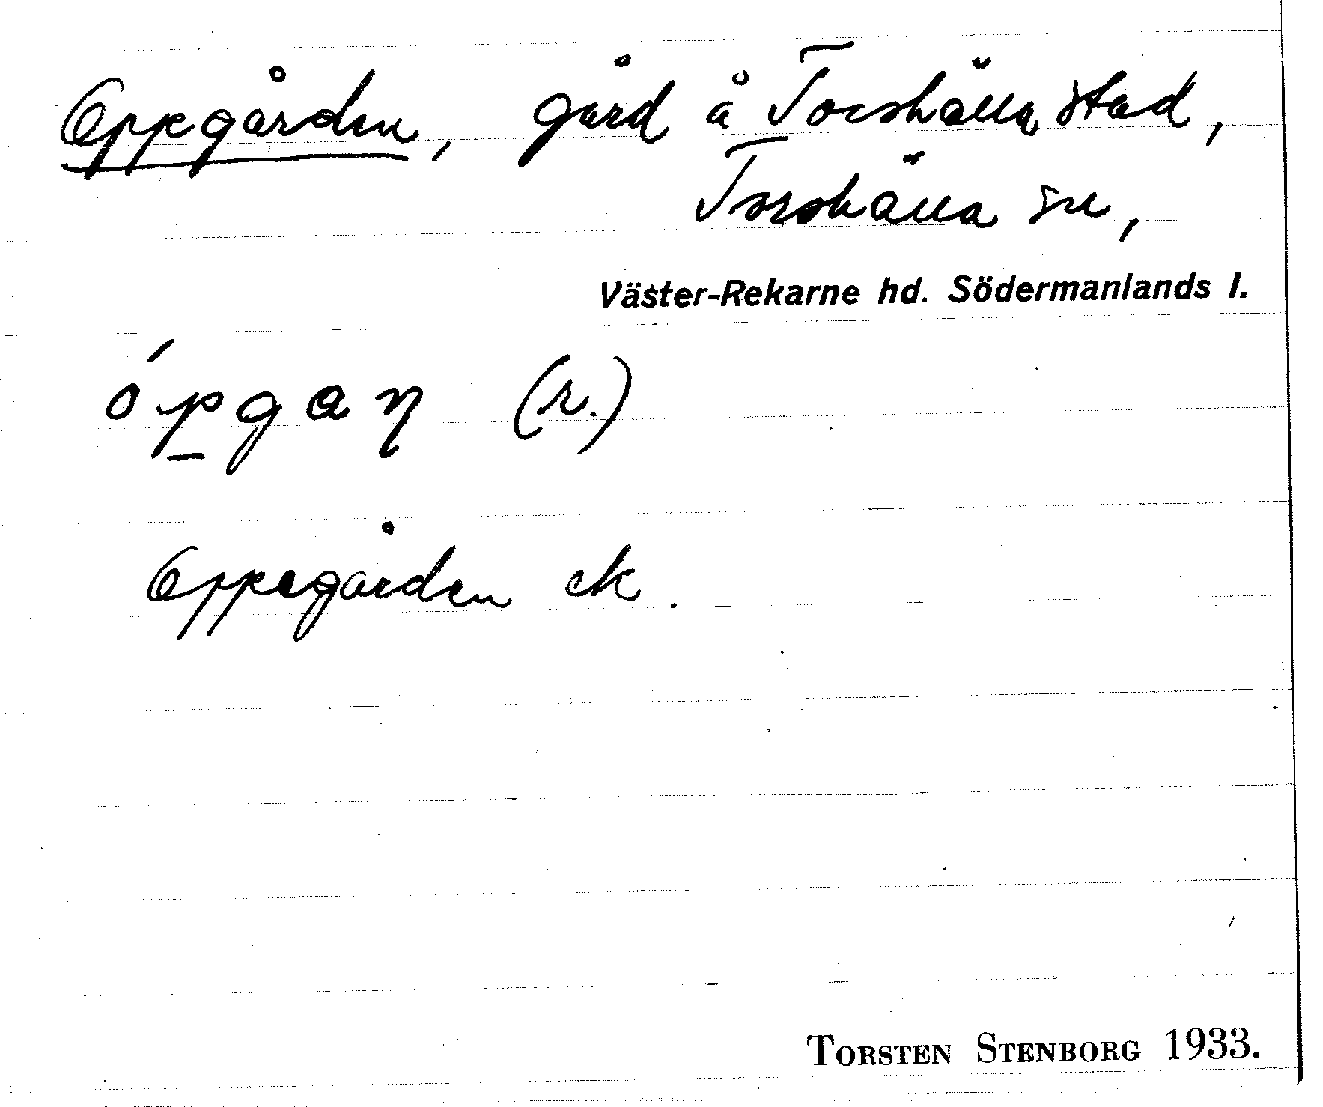 Oppgården, gård å Torshälla stad,
Torshälla sn,
Väster-Rekarne hd. Södermanlands l.
ópgan (r.)
Oppegården ek.
TORSTEN STENBORG 1933.